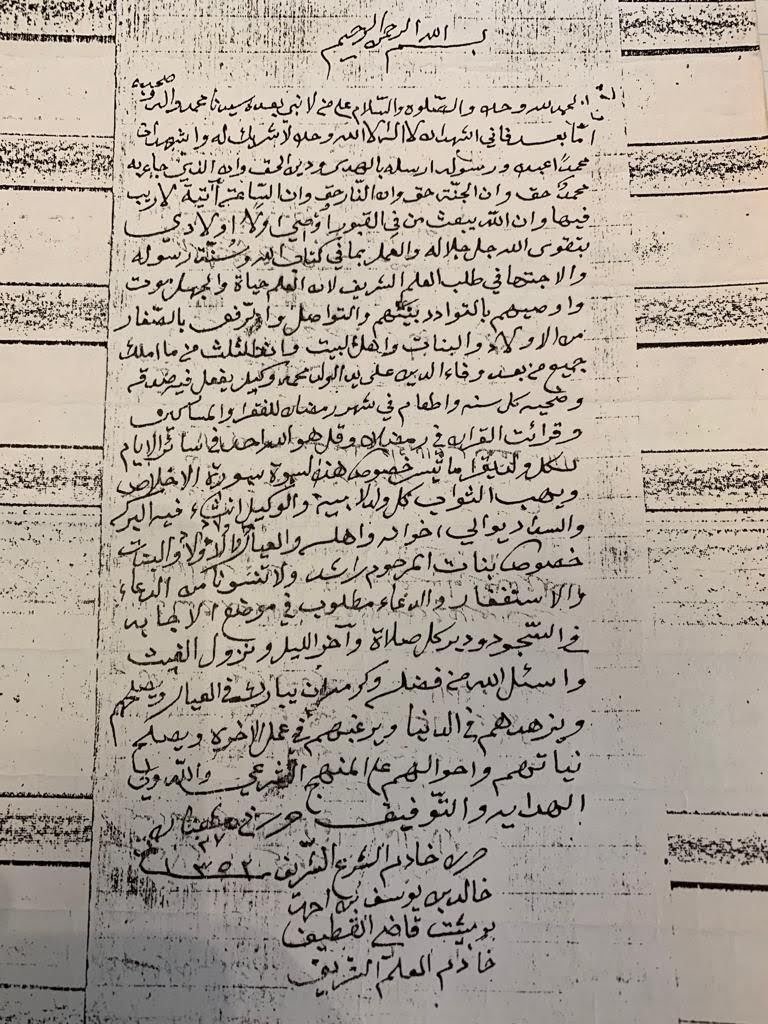 بسم الله الرحمن الرحيم
الحمد لله وحده والصلوة والسلام على من لا نبي بعده سيدنا محمد واله وصحبه
أما بعد فاني اشهد ان لا اله الا الله وحده لا شريك له واشهد ان
محمدًا عبده ورسوله ارسله بالهدى ودين الحق وان الذي جاء به
محمد حق وان الجنة حق وان النار حق وان الساعة آتية لا ريب
فيها وان الله يبعث من في القبور أوصي اولادي
بتقوى الله جل جلاله والعمل بما في كتاب الله وسنة رسوله
والاجتهاد في طلب العلم الشريف لانه العلم حياة والجهل موت
واوصيهم بالتوادد بينهم والتواصل والرفق بالصغار
من الاولاد والبنات واهل البيت الثلث من ما املك
جميع من بعد وفاء الدين على يد الولد محمد وكيل يفعل فيه صدقه
وضحيه كل سنه واطعام في شهر رمضان للفقراء والمساكين
وقرائت القران في رمضان وقل هو الله احد في سائر الايام
لكل ولد يقرا ما تيسر خصوص هذه السورة سورة الاخلاص
ويهب الثواب كل ولد لابيه والوكيل انشاء فيه البركه
والسداد يوالي اخوانه واهله والعيال والاولاد والبنات
خصوص بنات المرحوم راشد ولا تنسونا من الدعاء
والاستغفار والدعاء مطلوب في موضع الاجابه
في السجود ودبر كل صلاة وآخر الليل ونزول الغيث
واسئل الله من فضله وكرمه ان يبارك في العيال ويصلحهم
ويزهدهم في الدنيا ويرغبهم في عمل الاخره ويصلح
نياتهم واحوالهم على المنهج الشرعي والله ولي
الهدايه والتوفيق حرر في
٢٧
حرره خادم الشرع الشريف ١٣٥٢
خالد بن يوسف بن احمد
بوبشيت قاضي القطيف
خادم العلم الشريف